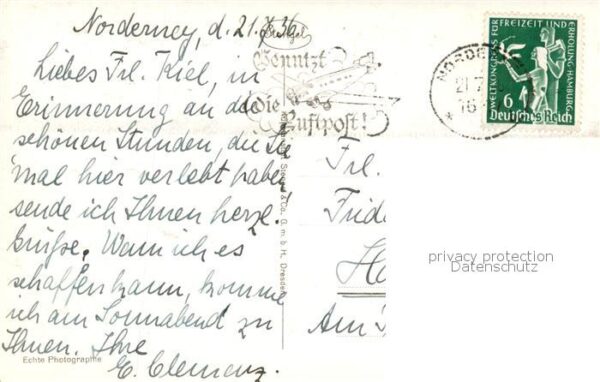 Norderney, d. 21.7.36.
Liebes Frl. Kiel, in
Erinnerung an die
schönen Stunden, die Sie
mal hier verlebt haben
sende ich Ihnen herzl.
Grüße. Wenn ich es
schaffen kann, komme
ich am Sonnabend zu
Ihnen. Ihre
E. Clemenz.
Echte Photographie
Benutzt
Die Luftpost!
& Co. G. m. b. H. Dresden
NORDERNEY
21.7.
16
WELTKONGRESS FÜR FREIZEIT UND ERHOLUNG HAMBURG
6
Deutsches Reich
Frl.
Fride
Ha
Am
privacy protection
Datenschutz